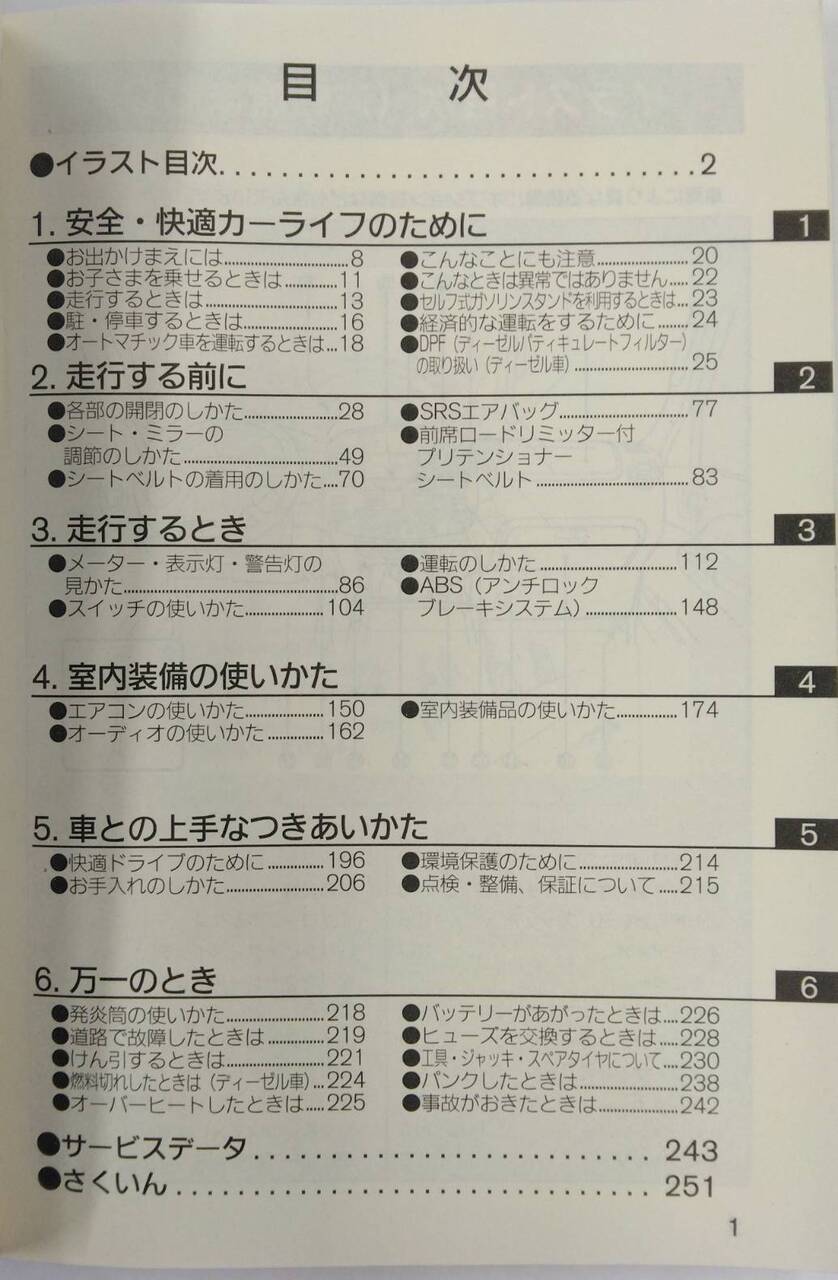 目　次
●イラスト目次................................2
1. 安全・快適カーライフのために
1
●お出かけまえには..............................8
●お子さまを乗せるときは..................11
●走行するときは................................13
●駐・停車するときは........................16
●オートマチック車を運転するときは...18
●こんなことにも注意......................20
●こんなときは異常ではありません.....22
●セルフ式ガソリンスタンドを利用するときは...23
●経済的な運転をするために.......24
●DPF（ディーゼルパティキュレートフィルター）
の取り扱い（ディーゼル車）..........................25
2. 走行する前に
2
●各部の開閉のしかた......................28
●シート・ミラーの
調節のしかた....................................49
●シートベルトの着用のしかた....70
●SRSエアバッグ..............................77
●前席ロードリミッター付
プリテンショナー
シートベルト....................................83
3. 走行するとき
3
●メーター・表示灯・警告灯の
見かた..................................................86
●スイッチの使いかた..................104
●運転のしかた................................112
●ABS（アンチロック
ブレーキシステム）......................148
4. 室内装備の使いかた
4
●エアコンの使いかた..................150
●オーディオの使いかた..............162
●室内装備品の使いかた..............174
5. 車との上手なつきあいかた
5
●快適ドライブのために.............196
●お手入れのしかた......................206
●環境保護のために......................214
●点検・整備、保証について.....215
6. 万一のとき
6
●発炎筒の使いかた......................218
●道路で故障したときは.............219
●けん引するときは......................221
●燃料切れしたときは（ディーゼル車）...224
●オーバーヒートしたときは.....225
●バッテリーがあがったときは....226
●ヒューズを交換するときは.....228
●工具・ジャッキ・スペアタイヤについて....230
●パンクしたときは......................238
●事故がおきたときは..................242
●サービスデータ........................... 243
●さくいん................................ 251
1